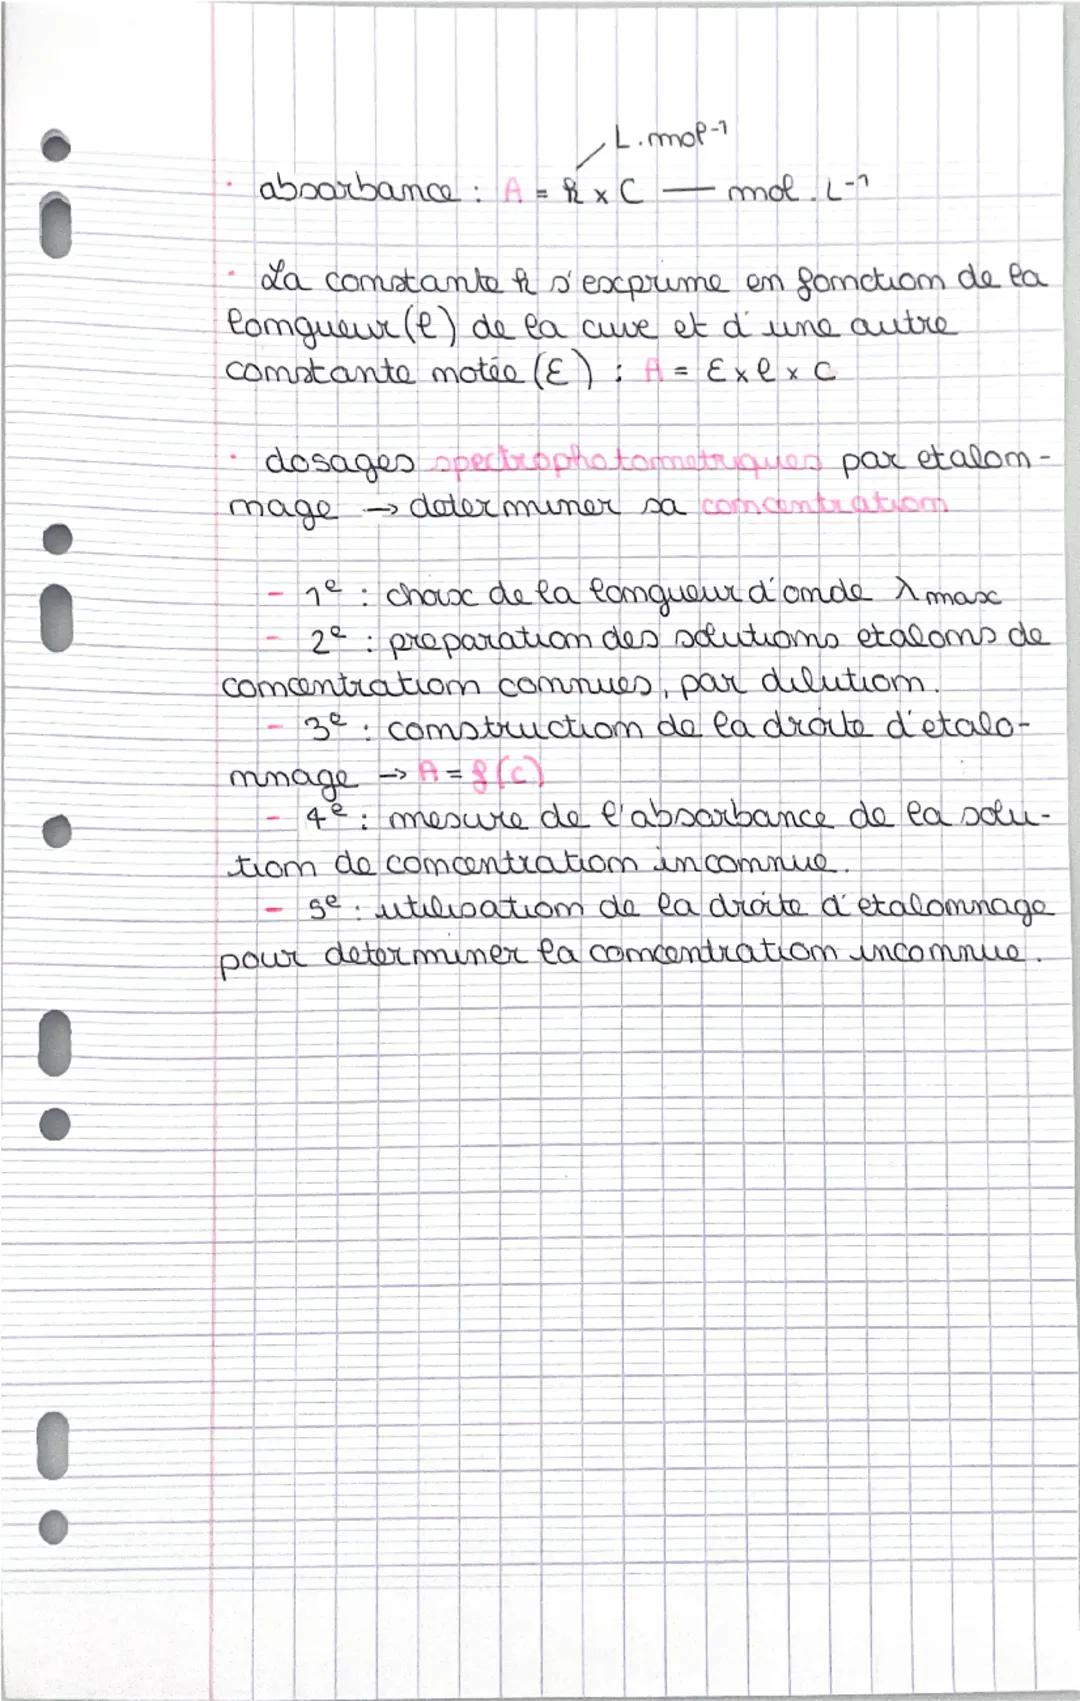 L.mol-1
· absorbance : A = k x C — mol.L-1
· La constante k s'exprime en fonction de la
longueur (l) de la cuve et d'une autre
constante notée (ε) : A = ε x l x C
· dosages spectrophotometriques par etalon-
nage → determiner sa concentration
- 1e : choix de la longueur d'onde λ max
- 2e : preparation des solutions etalons de
concentration connues, par dilution.
- 3e : construction de la droite d'etalo-
nnage → A = f(c)
- 4e : mesure de l'absorbance de la solu-
tion de concentration inconnue.
- 5e : utilisation de la droite d'etalonnage
pour determiner la concentration inconnue.